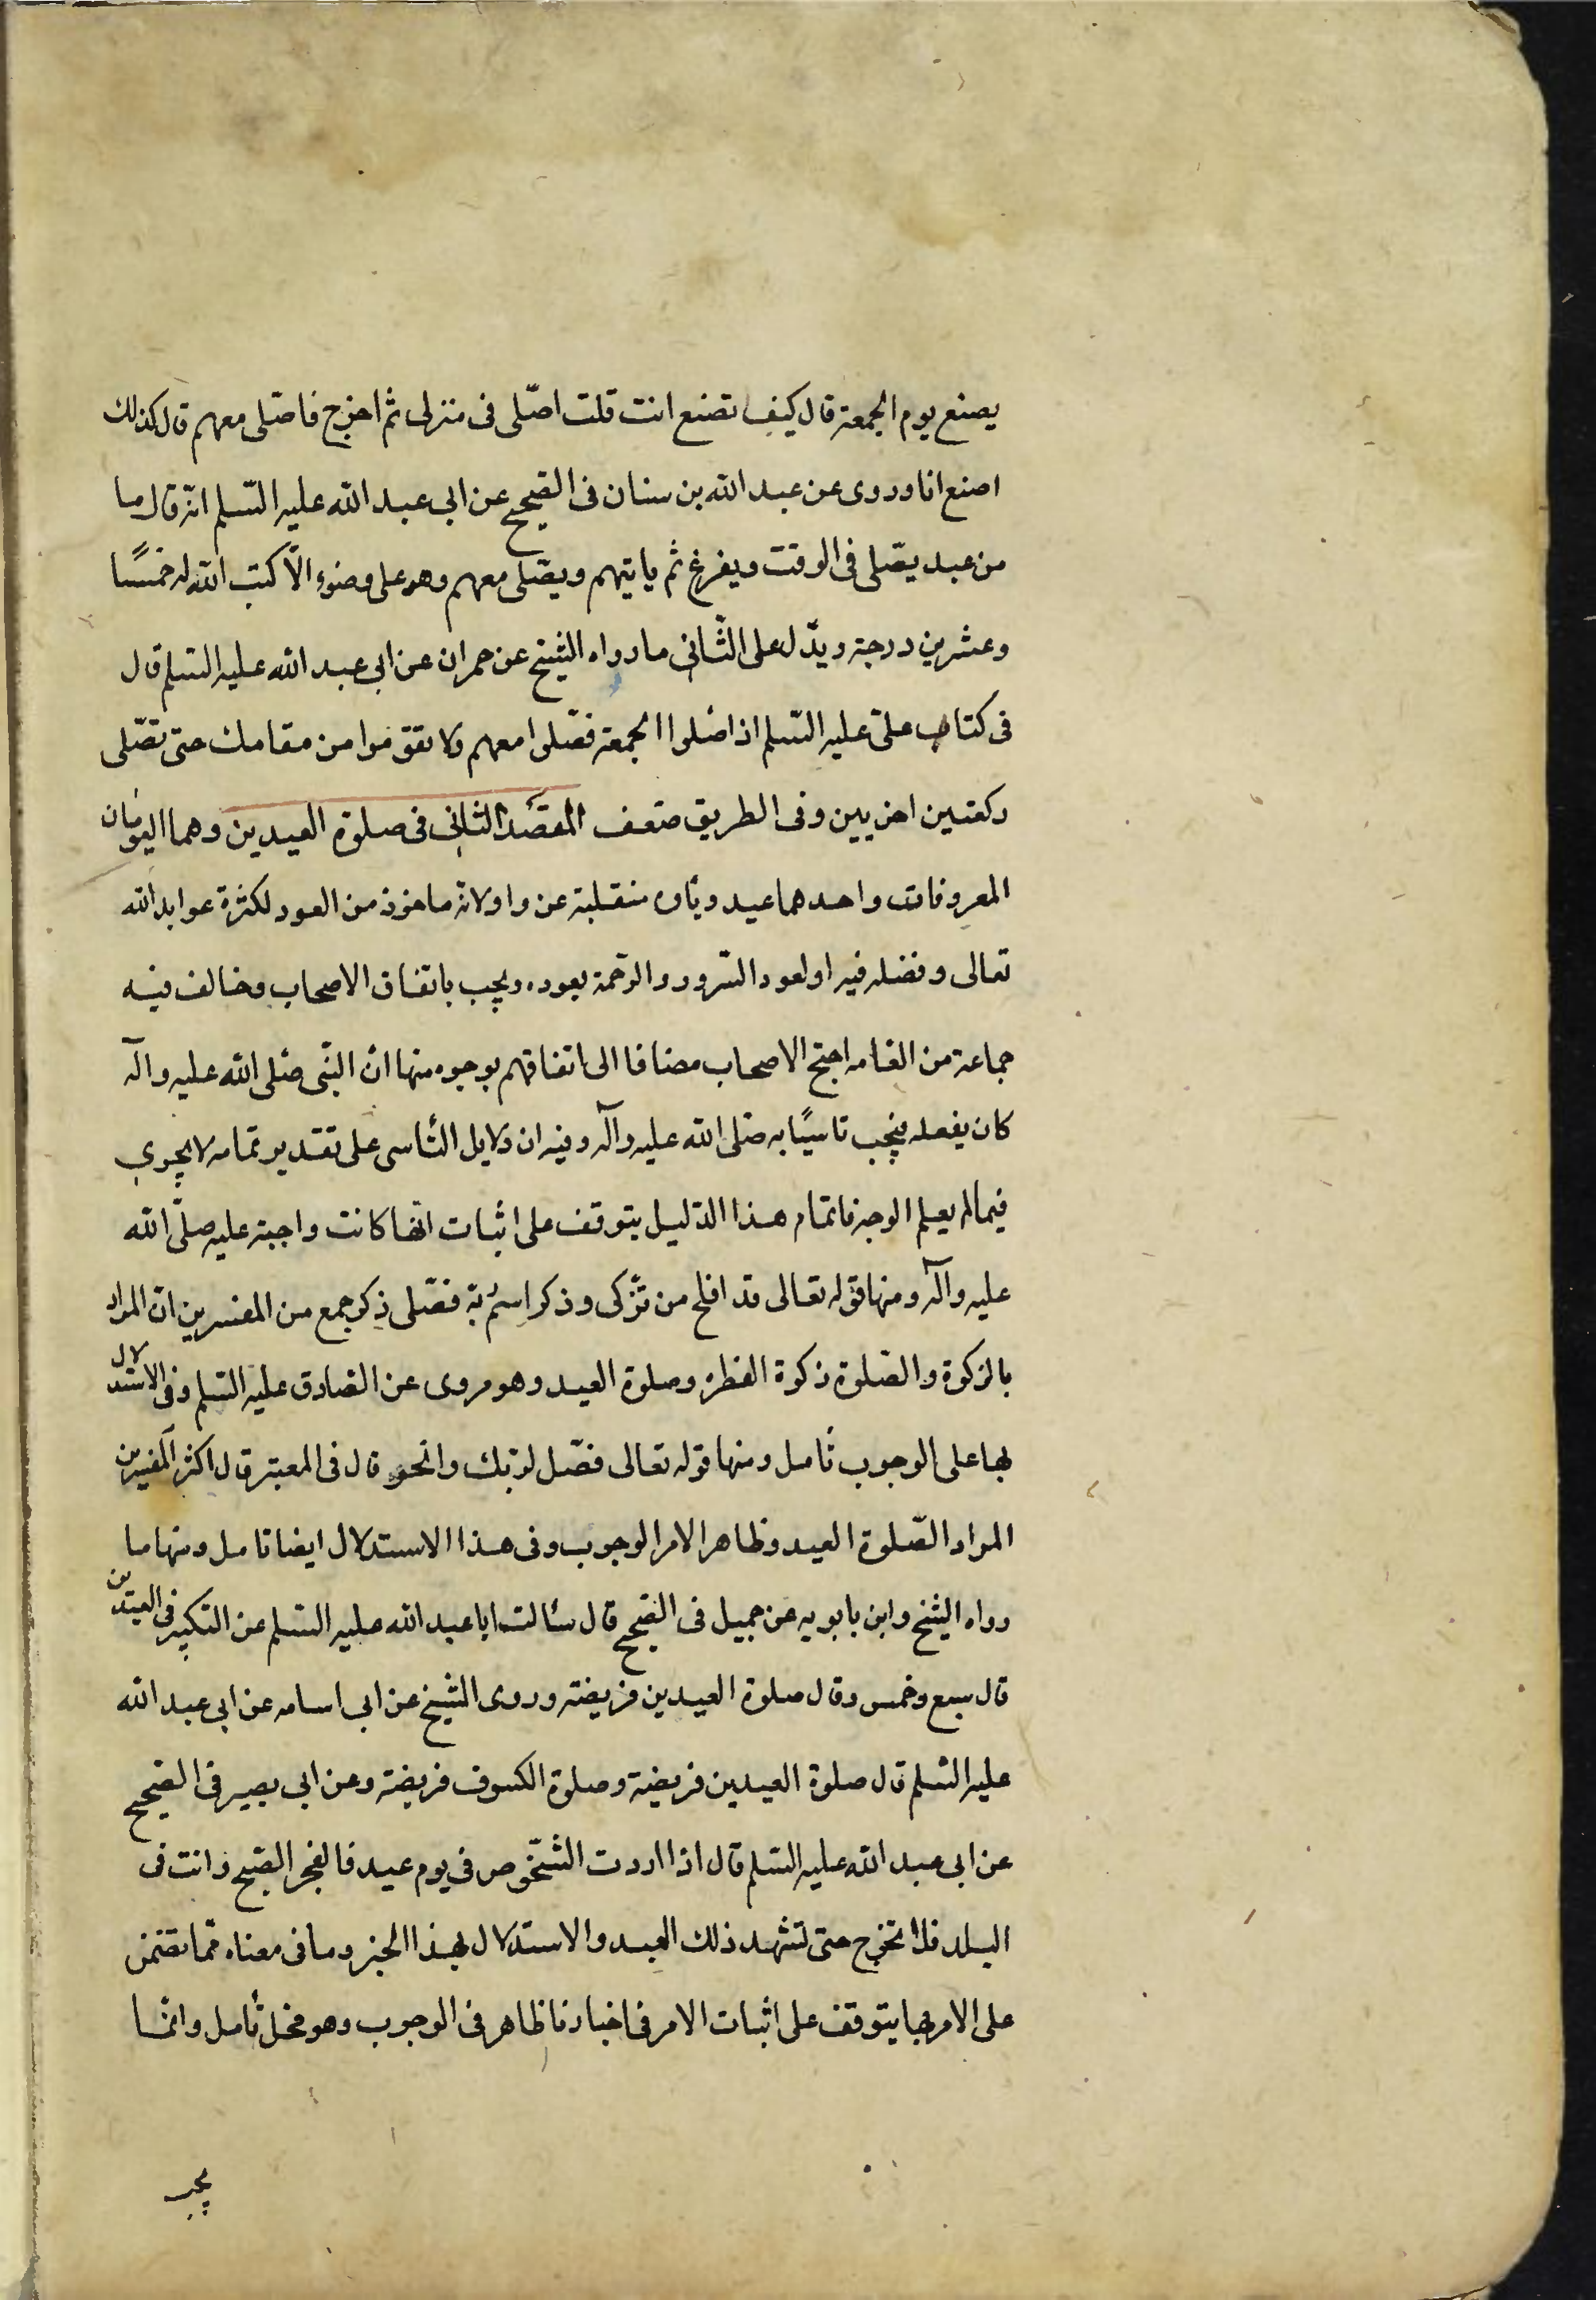 يصنع يوم الجمعة قال كيف تصنع انت قلت اصلّى فى منزلى ثم اخرج فاصلى معهم قال كذلك
اصنع انا وروى عن عبد الله بن سنان فى الصحيح عن ابى عبد الله عليه السّلم انّه قال ما
من عبد يصلّى فى الوقت ويفرغ ثم ياتيهم ويصلّى معهم وهو على وضوء الّا كتب الله له خمسًا
وعشرين درجة ويدّل على الثّانى ما رواه الشيخ عن حمران عن ابى عبد الله عليه السّلم قال
فى كتاب علىّ عليه السّلم اذا صلوا الجمعة فصّلوا معهم ولا تقومّوا من مقامك حتى تصّلى
ركعتين اخريين وفى الطريق ضعف المقصد الثانى فى صلوة العيدين وهما اليومان
المعروفان واحدهما عيد وياوه منقلبة عن واو لانّه ماخوذ من العود لكثرة عوايد الله
تعالى وفضله فيه او لعود السّرور والرّحمة بعوده ويجب باتفاق الاصحاب وخالف فيه
جماعة من العامه احتج الاصحاب مضافا الى اتفاقهم بوجوه منها انّ النبّى صّلى الله عليه وآله
كان يفعله فيجب تاسيًا به صّلى الله عليه وآله وفيه ان دلايل التّاسى على تقدير تمامه لا يجرى
فيما لم يعلم الوجه فاتمام هذا الدّليل يتوقف على اثبات انّها كانت واجبة عليه صلّى الله
عليه وآله ومنها قوله تعالى قد افلح من تزّكى وذكر اسم ربّه فصّلى ذكر جمع من المفسرين انّ المراد
بالزكوة والصّلوة زكوة الفطرة وصلوة العيد وهو مروى عن الصّادق عليه السّلم وفى الاستدلال
بها على الوجوب تأمل ومنها قوله تعالى فصّل لربّك وانحر قال فى المعتبر قال اكثر المفسرين
المراد الصّلوة العيد وظاهر الامر الوجوب وفى هذا الاستدلال ايضا تامل ومنها ما
رواه الشيخ وابن بابويه عن جميل فى الصّحيح قال سئالت ابا عبد الله عليه السّلم عن التكبير فى العيدين
قال سبع وخمس وقال صلوة العيدين فريضة وروى الشيخ عن ابى اسامه عن ابى عبد الله
عليه السّلم قال صلوة العيدين فريضة وصلوة الكسوف فريضة وعن ابى بصير فى الصّحيح
عن ابى عبد الله عليه السّلم قال اذا اردت الشّخوص فى يوم عيد فانفجر الصّبح وانت فى
البلد فلا تخرج حتى تشهد ذلك العيد والاستدلال بهذا الخبر وما فى معناه ممّا تضمن
على الامر بها يتوقف على اثبات الامر فى اخبارنا ظاهر فى الوجوب وهو محل تأمل وانّما
يجب